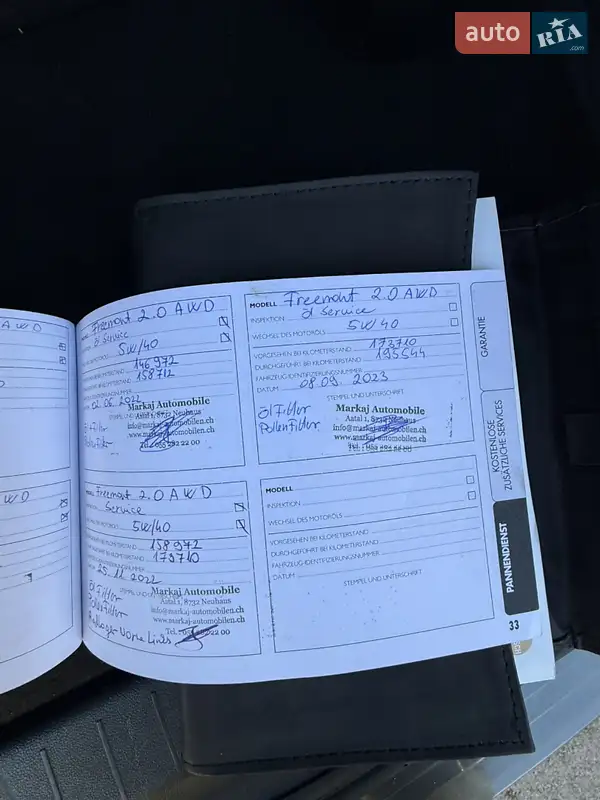 auto RIA.com
AWD
Freemont 2.0 AWD
öl Service
5W/40
146972
158712
02.06.2022
Markaj Automobile
Aatal 1, 8732 Neuhaus
info@markaj-automobilen.ch
www.markaj-automobilen.ch
WD
Freemont 2.0 AWD
Service
5W/40
158972
173710
25.11.2022
Öl Filter
Markaj Automobile
Aatal 1, 8732 Neuhaus
info@markaj-automobilen.ch
www.markaj-automobilen.ch
MODELL Freemont 2.0 AWD
INSPEKTION öl Service
WECHSEL DES MOTORÖLS 5W/40
VORGESEHEN BEI KILOMETERSTAND 173710
DURCHGEFÜHRT BEI KILOMETERSTAND 195544
FAHRZEUG-IDENTIFIZIERUNGSNUMMER
DATUM 08.09.2023
STEMPEL UND UNTERSCHRIFT
Öl Filter
Pollenfilter
Markaj Automobile
Aatal 1, 8732 Neuhaus
info@markaj-automobilen.ch
www.markaj-automobilen.ch
MODELL
INSPEKTION
WECHSEL DES MOTORÖLS
VORGESEHEN BEI KILOMETERSTAND
DURCHGEFÜHRT BEI KILOMETERSTAND
FAHRZEUG-IDENTIFIZIERUNGSNUMMER
DATUM
STEMPEL UND UNTERSCHRIFT
GARANTIE
KOSTENLOSE
ZUSÄTZLICHE SERVICES
PANNENDIENST
33